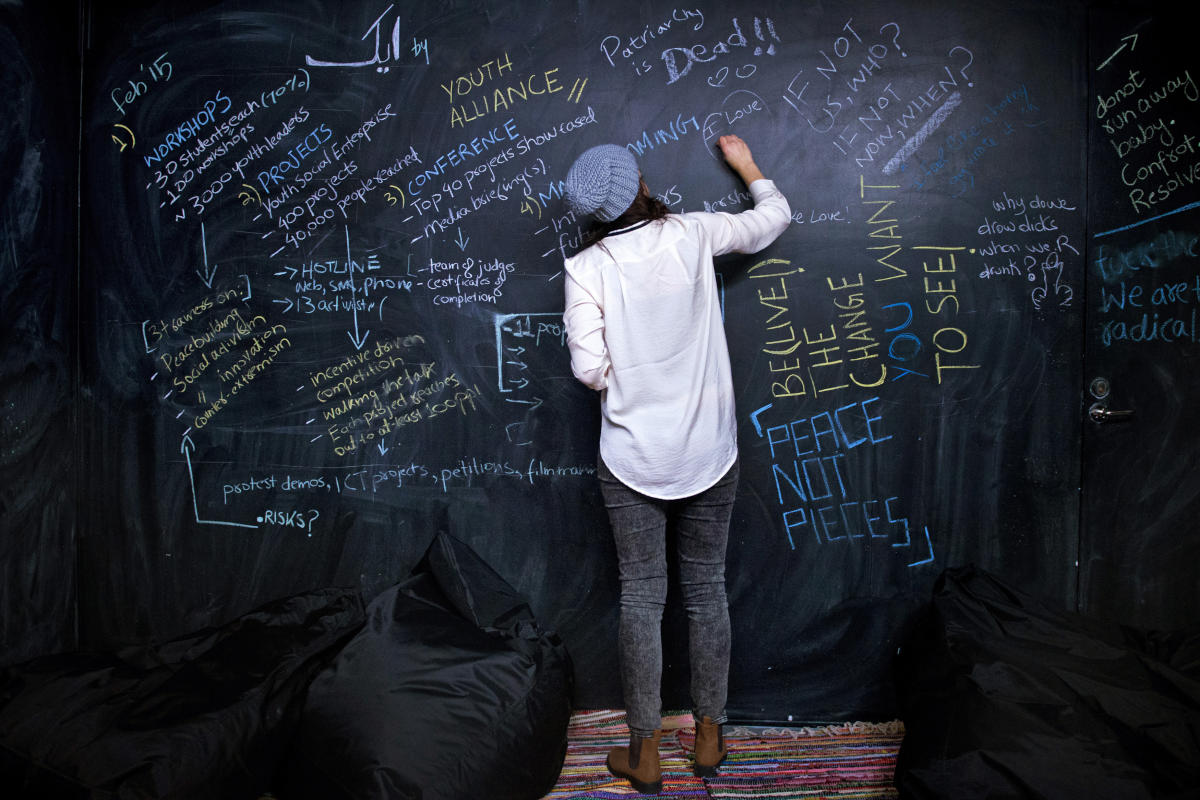 feb '15
ایک by
YOUTH
ALLIANCE //
1)
WORKSHOPS
- 30 students each (70%)
- 100 workshops
~ 3000 youth leaders
2) PROJECTS
- Youth Social Enterprise
- 400 projects
- 40,000 people reached
3) CONFERENCE
- Top 40 projects showcased
- media briefing(s).
4)
→ HOTLINE
web, sms, phone
- team of judges
- certificates of
completion
[3 trainers on:]
- Peacebuilding
- Social activism
- " innovation
- counter-extremism
- incentive driven
competition
- walking the talk
- Each project reaches
out to at-least 100 ppl
protest demos, ICT projects, petitions, film
• RISKS?
Patriarchy
is Dead!!
I Love
IF NOT
US, WHO?
IF NOT
NOW, WHEN?
Love!
BE(LIVE)
THE
CHANGE
YOU WANT
TO SEE!
"PEACE
NOT
PIECES"
why do we
draw dicks
when we R
drunk?
donot
run away
baby.
Confrot.
Resolve
We are
radical